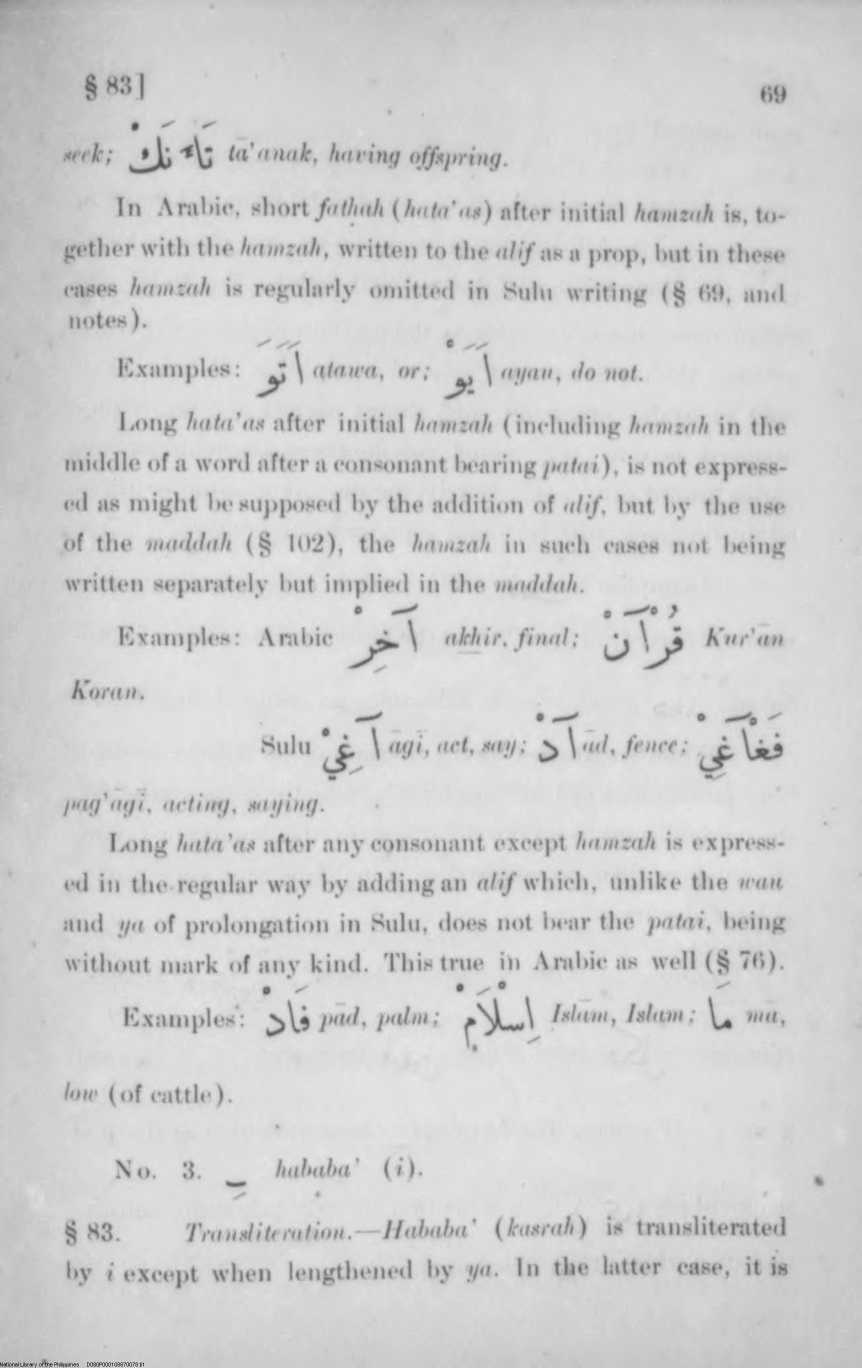 § 83]
69
seek; تَاءنَكْ ta'anak, having offspring.
In Arabic, short fathah (hata'as) after initial hamzah is, to-
gether with the hamzah, written to the alif as a prop, but in these
cases hamzah is regularly omitted in Sulu writing (§ 69, and
notes).
Examples: اَتَوَ atawa, or; اَيَوْ ayau, do not.
Long hata'as after initial hamzah (including hamzah in the
middle of a word after a consonant bearing patai), is not express-
ed as might be supposed by the addition of alif, but by the use
of the maddah (§ 102), the hamzah in such cases not being
written separately but implied in the maddah.
Examples: Arabic آخِرْ akhir, final; قُرْآنْ Kur'ān
Koran.
Sulu آغِيْ āgi, act, say; آدْ ād, fence; فَغْآغِيْ
pag'āgī, acting, saying.
Long hata'as after any consonant except hamzah is express-
ed in the regular way by adding an alif which, unlike the wau
and ya of prolongation in Sulu, does not bear the patai, being
without mark of any kind. This true in Arabic as well (§ 76).
Examples: فَادْ pād, palm; اِسْلَامْ Islām, Islam; مَا mā,
low (of cattle).
No. 3. ـِ hababa' (i).
§ 83. Transliteration.—Hababa' (kasrah) is transliterated
by i except when lengthened by ya. In the latter case, it is
National Library of the Philippines